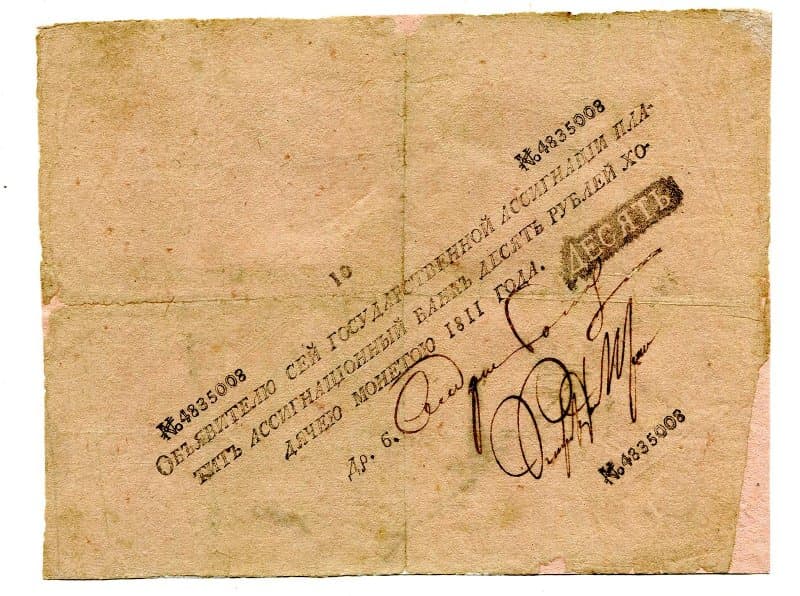 №4835008
10
№4835008
ОБЪЯВИТЕЛЮ СЕЙ ГОСУДАРСТВЕННОЙ АССИГНАЦІИ ПЛА-
ТИТЪ АССИГНАЦІОННЫЙ БАНКЪ ДЕСЯТЬ РУБЛЕЙ ХО-
ДЯЧЕЮ МОНЕТОЮ 1811 ГОДА.
ДЕСЯТЬ
№4835008